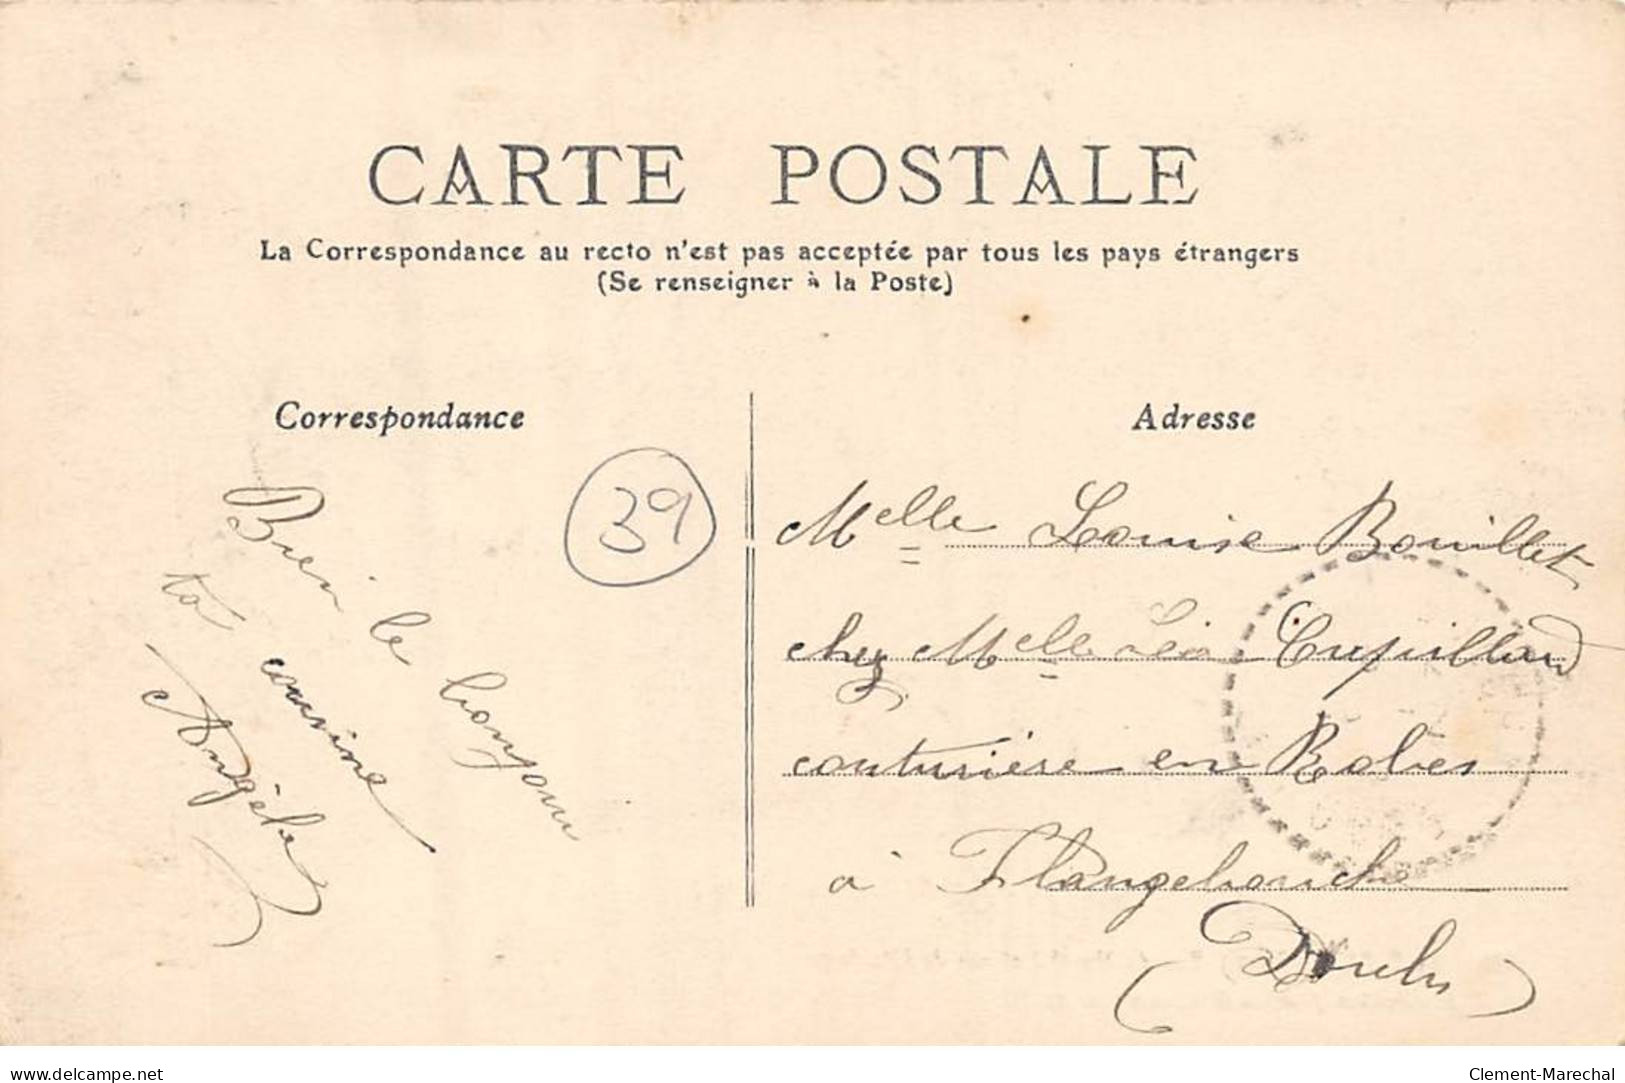 CARTE POSTALE
La Correspondance au recto n'est pas acceptée par tous les pays étrangers
(Se renseigner à la Poste)
Correspondance
39
Bien le bonjour
ta cousine
Angèle
Adresse
Melle Louise Bouillet
chez Melle Léa Cupillard
couturière en Robes
à Flangebouche
(Doubs)
www.delcampe.net
Clement-Marechal